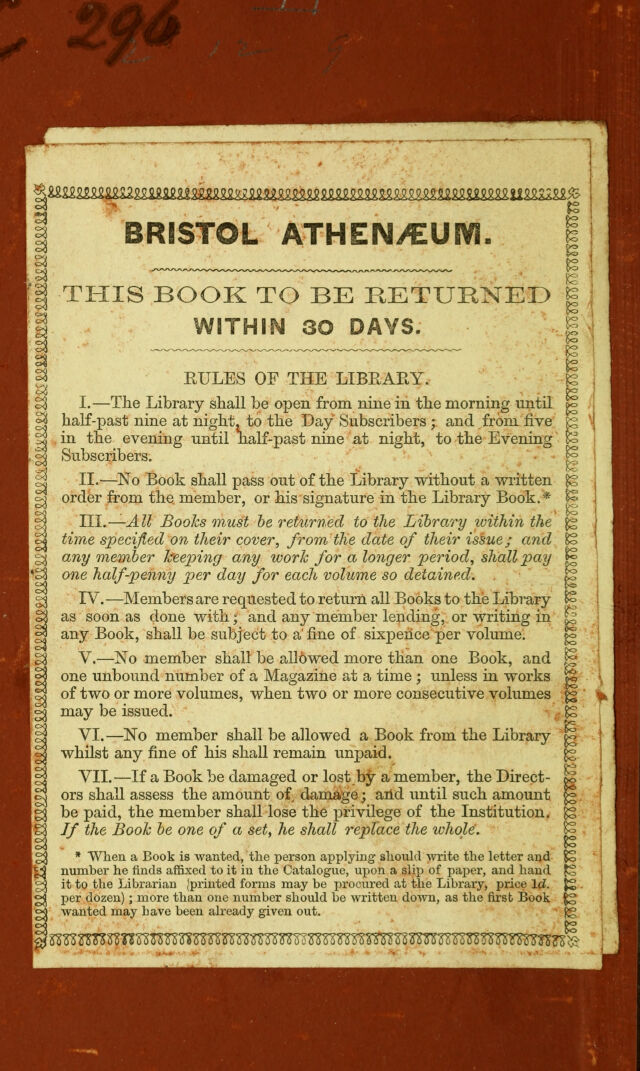 296
BRISTOL ATHENÆUM.
THIS BOOK TO BE RETURNED
WITHIN 30 DAYS.
RULES OF THE LIBRARY.
I.—The Library shall be open from nine in the morning until
half-past nine at night, to the Day Subscribers; and from five
in the evening until half-past nine at night, to the Evening
Subscribers.
II.—No Book shall pass out of the Library without a written
order from the member, or his signature in the Library Book.*
III.—All Books must be returned to the Library within the
time specified on their cover, from the date of their issue; and
any member keeping any work for a longer period, shall pay
one half-penny per day for each volume so detained.
IV.—Members are requested to return all Books to the Library
as soon as done with; and any member lending, or writing in
any Book, shall be subject to a fine of sixpence per volume.
V.—No member shall be allowed more than one Book, and
one unbound number of a Magazine at a time; unless in works
of two or more volumes, when two or more consecutive volumes
may be issued.
VI.—No member shall be allowed a Book from the Library
whilst any fine of his shall remain unpaid.
VII.—If a Book be damaged or lost by a member, the Direct-
ors shall assess the amount of damage; and until such amount
be paid, the member shall lose the privilege of the Institution.
If the Book be one of a set, he shall replace the whole.
* When a Book is wanted, the person applying should write the letter and
number he finds affixed to it in the Catalogue, upon a slip of paper, and hand
it to the Librarian (printed forms may be procured at the Library, price 1d.
per dozen); more than one number should be written down, as the first Book
wanted may have been already given out.